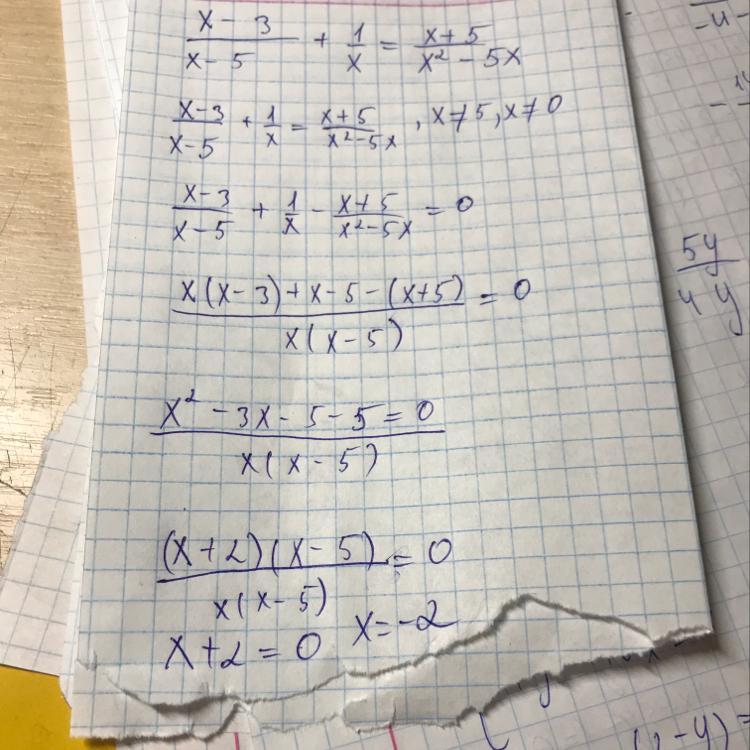 (x-3)/(x-5) + 1/x = (x+5)/(x² - 5x)
(x-3)/(x-5) + 1/x = (x+5)/(x²-5x), x≠5, x≠0
(x-3)/(x-5) + 1/x - (x+5)/(x²-5x) = 0
(x(x-3)+x-5-(x+5))/(x(x-5)) = 0
(x² - 3x - 5 - 5 = 0)/(x(x-5))
((x+2)(x-5))/(x(x-5)) = 0
x+2 = 0 x = -2
5y/4y